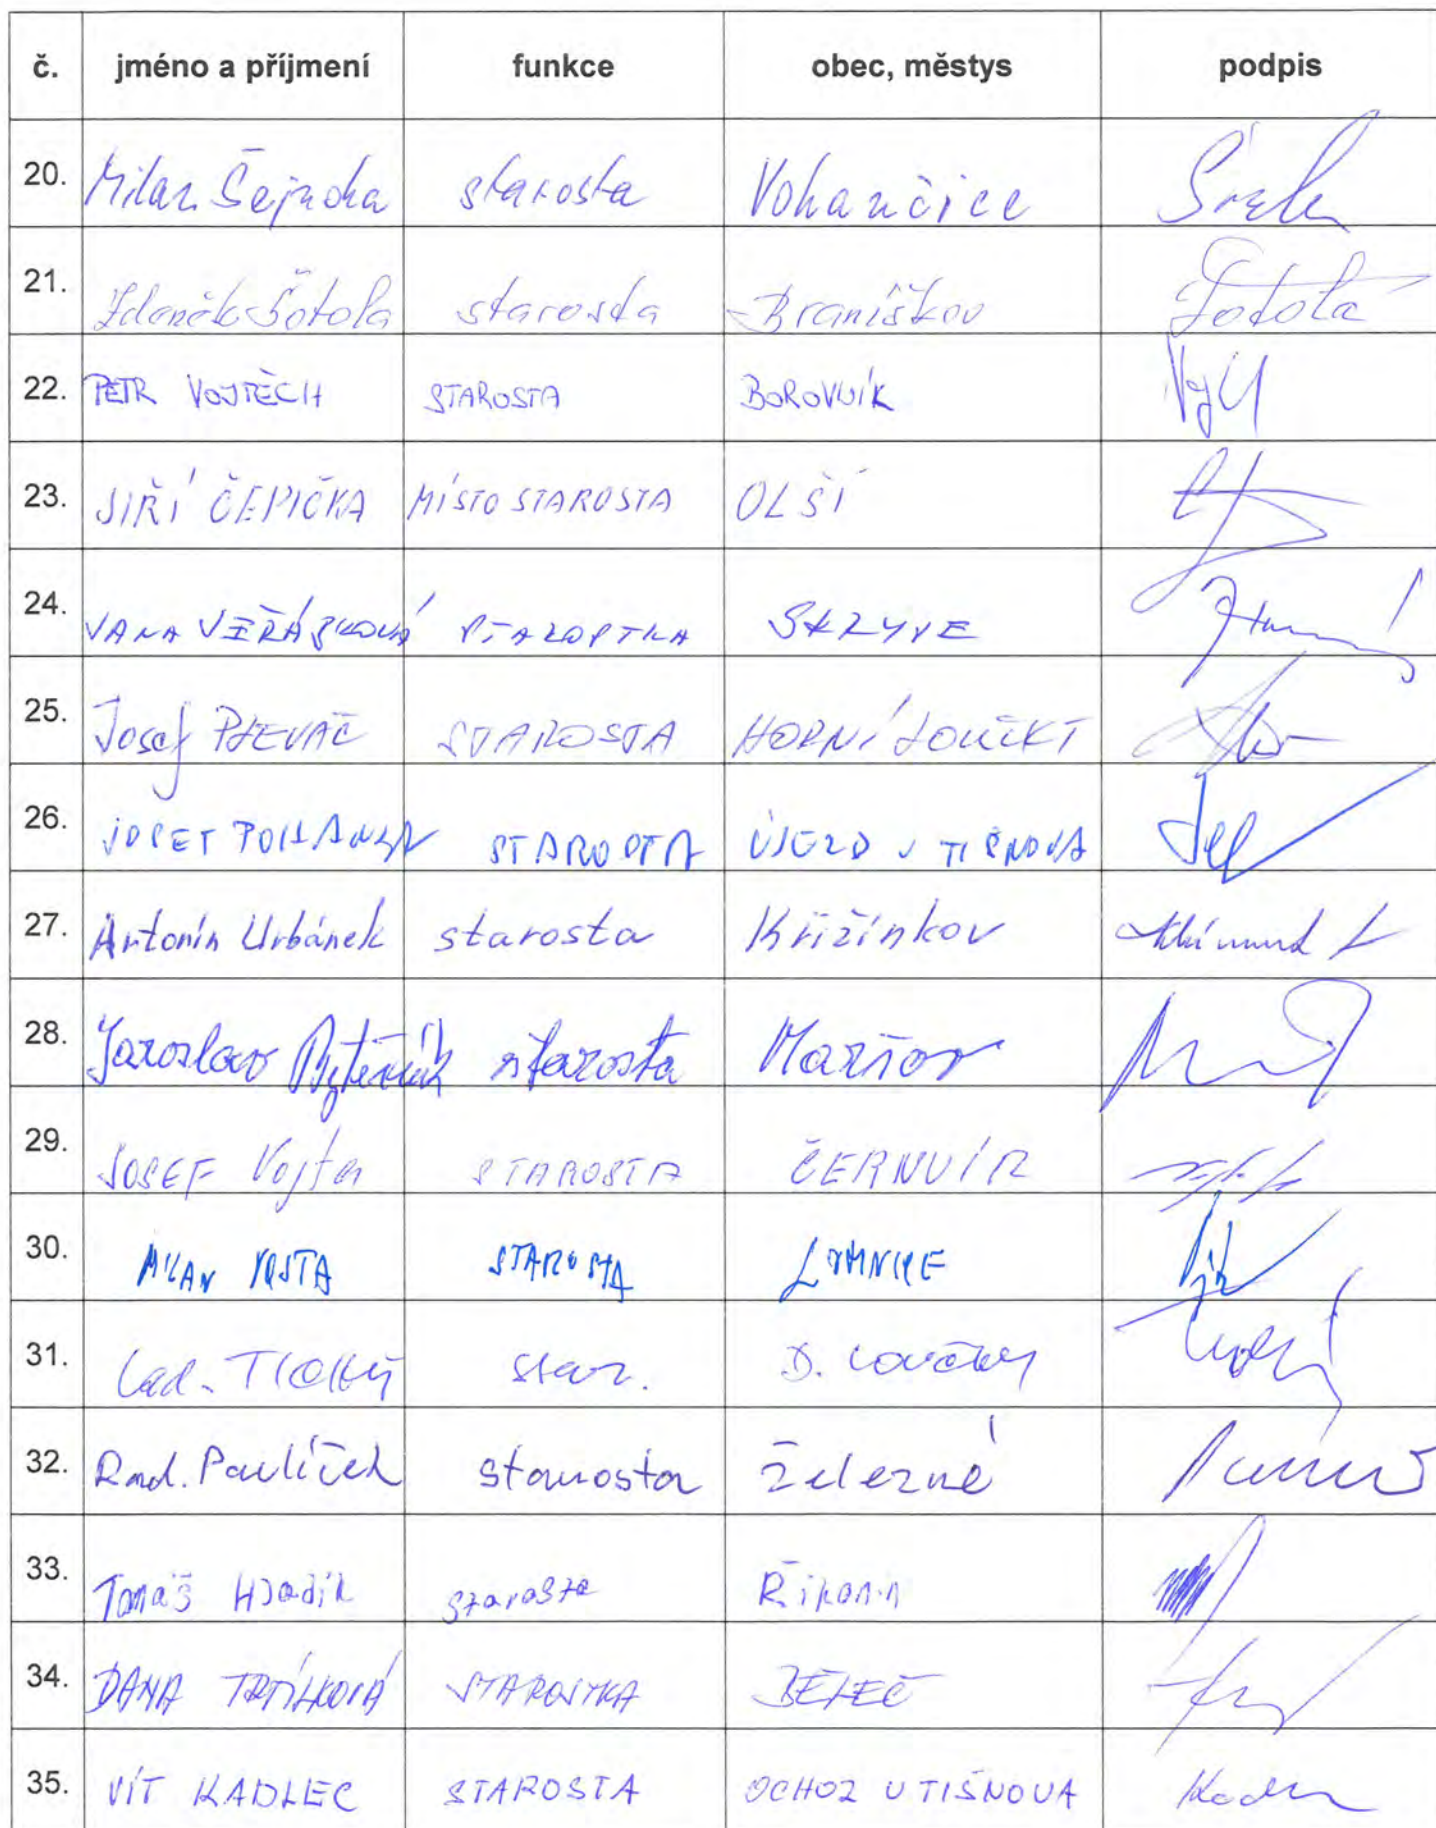 č. jméno a příjmení funkce obec, městys podpis
20. Milan Šejnoha starosta Vohančice
21. Zdeněk Šotola starosta Braníškov Šotola
22. PETR VOJTĚCH STAROSTA BOROVNÍK
23. JIŘÍ ČEPIČKA MÍSTOSTAROSTA OLŠÍ
24. JANA STAROSTKA SKRYJE
25. Josef PLEVAČ STAROSTA HORNÍ LOUČKY
26. JOSEF STAROSTA ÚJEZD U TIŠNOVA
27. Antonín Urbánek starosta Křižínkov
28. Jaroslav starosta Maršov
29. JOSEF Vojta STAROSTA ČERNVÍR
30. MILAN VOSTA STAROSTA LOMNICE
31. Lad. star. D. Loučky
32. Rad. Pavlíček starosta Železné
33. Tomáš Hladík starosta Řikonín
34. DANA TRTÍLKOVÁ STAROSTKA BĚLEČ
35. VÍT KADLEC STAROSTA OCHOZ U TIŠNOVA